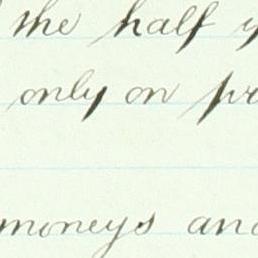 the half
only on
moneys and